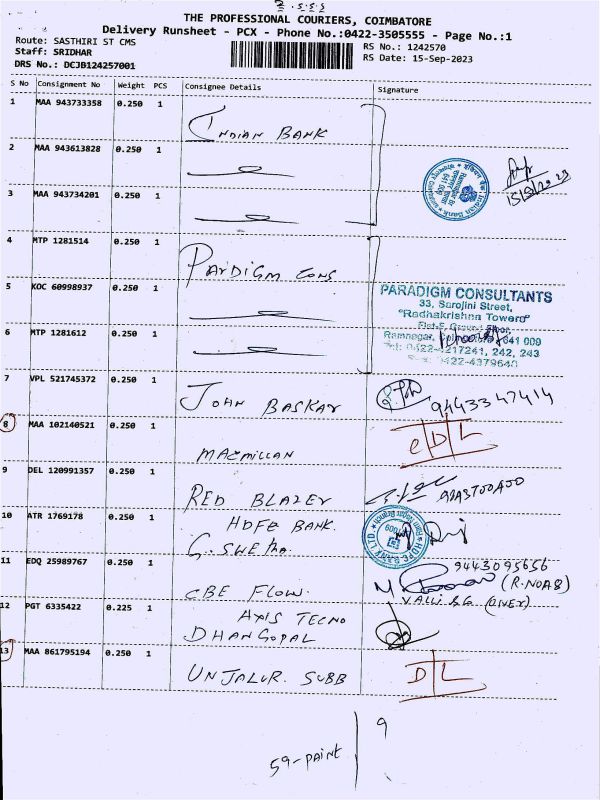 THE PROFESSIONAL COURIERS, COIMBATORE
Delivery Runsheet - PCX - Phone No.:0422-3505555 - Page No.:1
Route: SASTHIRI ST CMS
RS No.: 1242570
Staff: SRIDHAR
RS Date: 15-Sep-2023
DRS No.: DCJB124257001
S No Consignment No Weight PCS Consignee Details Signature
1 MAA 943733358 0.250 1 INDIAN BANK
2 MAA 943613828 0.250 1
Indian Bank
15/9/2023
3 MAA 943734201 0.250 1
4 MTP 1281514 0.250 1 PARDIGM CONS
5 KOC 60998937 0.250 1
PARADIGM CONSULTANTS
33, Sarojini Street,
"Radhakrishna Towers"
Ramnagar, 641 009
6 MTP 1281612 0.250 1
242, 243
0422-4379640
7 VPL 521745372 0.250 1 JOHN BASKAR 9443347414
8 MAA 102140521 0.250 1 MACMILLAN DL
9 DEL 120991357 0.250 1 RED BLAZER
10 ATR 1769178 0.250 1 HDFC BANK.
HDFC BANK LTD.
G. SWETHA
11 EDQ 25989767 0.250 1 CBE FLOW. 9443095656
12 PGT 6335422 0.225 1 AXIS TECNO
DHANGOPAL
13 MAA 861795194 0.250 1 UNJALUR. SUBB DL
59-PAINT 9